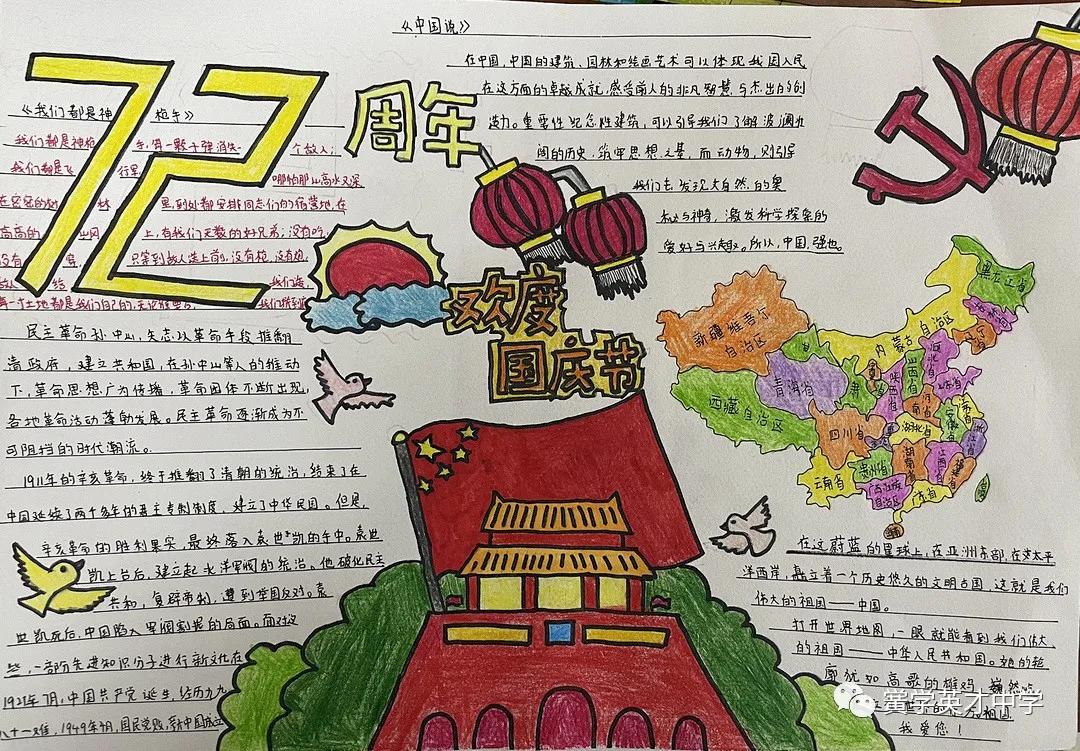 《中国说》
在中国,中国的建筑、园林和绘画艺术可以体现我国人民
在这方面的卓越成就,感悟前人的非凡智慧与杰出的创
造力。重要性纪念性建筑,可以引导我们了解波澜壮
阔的历史,筑牢思想之基,而动物,则引导
我们去发现大自然的奥
秘与神奇,激发科学探索的
爱好与兴趣。所以,中国,强也。
72
周年
《我们都是神枪手》
我们都是神枪手,每一颗子弹消灭一个敌人;
我们都是飞行军,哪怕那山高水又深
在密密的树林里,到处都安排同志们的宿营地,在
高高的山冈上,有我们无数的好兄弟;没有吃,
只等到敌人送上前,没有枪,没有炮,
我们
欢度
国庆节
民主革命孙中山,矢志以革命手段推翻
清政府,建立共和国,在孙中山等人的推动
下,革命思想广为传播,革命团体不断出现,
各地革命活动蓬勃发展。民主革命逐渐成为不
可阻挡的时代潮流。
1911年的辛亥革命,终于推翻了清朝的统治,结束了在
中国延续了两千多年的君主专制制度,建立了中华民国。但是,
辛亥革命的胜利果实,最终落入袁世凯的手中。袁世
凯上台后,建立起北洋军阀的统治。他破化民主
共和,复辟帝制,遭到举国反对。袁
世凯死后,中国陷入军阀割据的局面。而对这
些,一部分先进知识分子进行新文化在
1921年7月,中国共产党诞生,经历九九
八十一难,1949年
新疆维吾尔
自治区
西藏自治区
青海省
四川省
云南省
贵州省
内蒙古自治区
黑龙江省
甘肃
陕西省
山西省
河北省
湖北省
湖南省
江西省
福建省
浙江省
广东省
广西壮族
自治区
在这蔚蓝的星球上,在亚洲东部,在太平
洋西岸,矗立着一个历史悠久的文明古国,这就是我们
伟大的祖国——中国。
打开世界地图,一眼就能看到我们伟大
的祖国——中华人民共和国。她的轮
廓犹如高歌的雄鸡,巍然
我爱您!
黉学英才中学